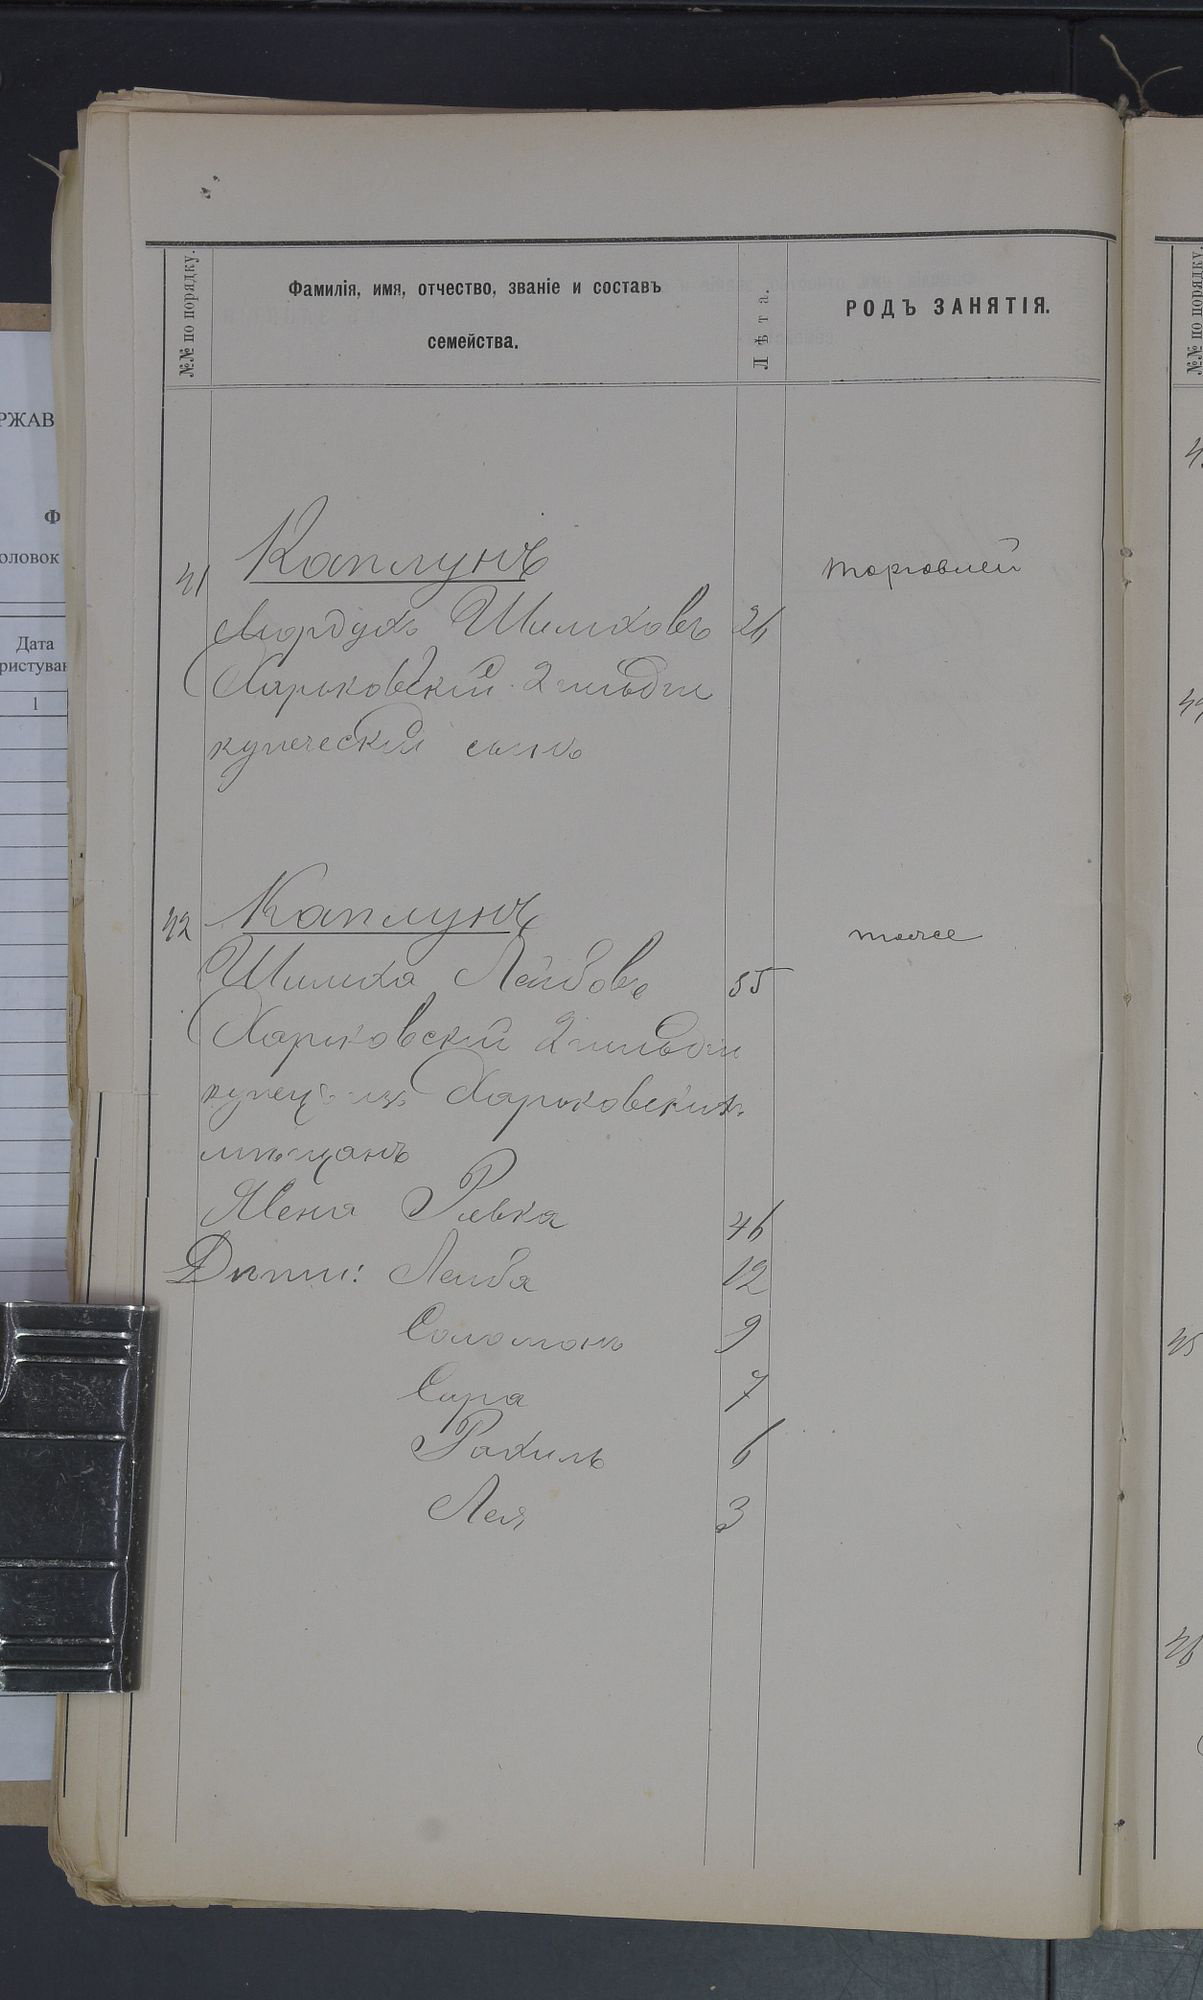 №№ по порядку.
Фамилія, имя, отчество, званіе и составъ
семейства.
Лѣта.
РОДЪ ЗАНЯТІЯ.
41 Каплунъ торговлей
Мордухъ Шимховъ 26
Харьковскій 2 гильдіи
купеческій сынъ
42 Каплунъ тоже
Шимха Лейбовъ 55
Харьковскій 2 гильдіи
купецъ изъ Харьковскихъ
мѣщанъ
Жена Ривка 46
Дѣти: Лейба 12
Соломонъ 9
Сара 7
Рахиль 6
Лея 3
РЖАВ
Ф
оловок
Дата
ристуван
1
№№ по порядку.
45
46